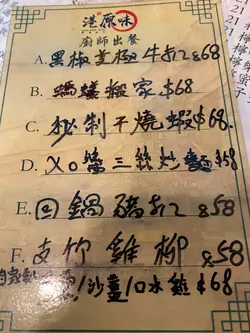 港原味
廚師出餐
A. 黑椒芝極牛扒 $68
B. 螞蟻搬家 $68
C. 秘制干燒蝦 $68
D. XO醬三絲炒麵 $58
E. 回鍋豬扒 $58
F. 支竹雞柳 $58
/沙薑/口水雞 $68